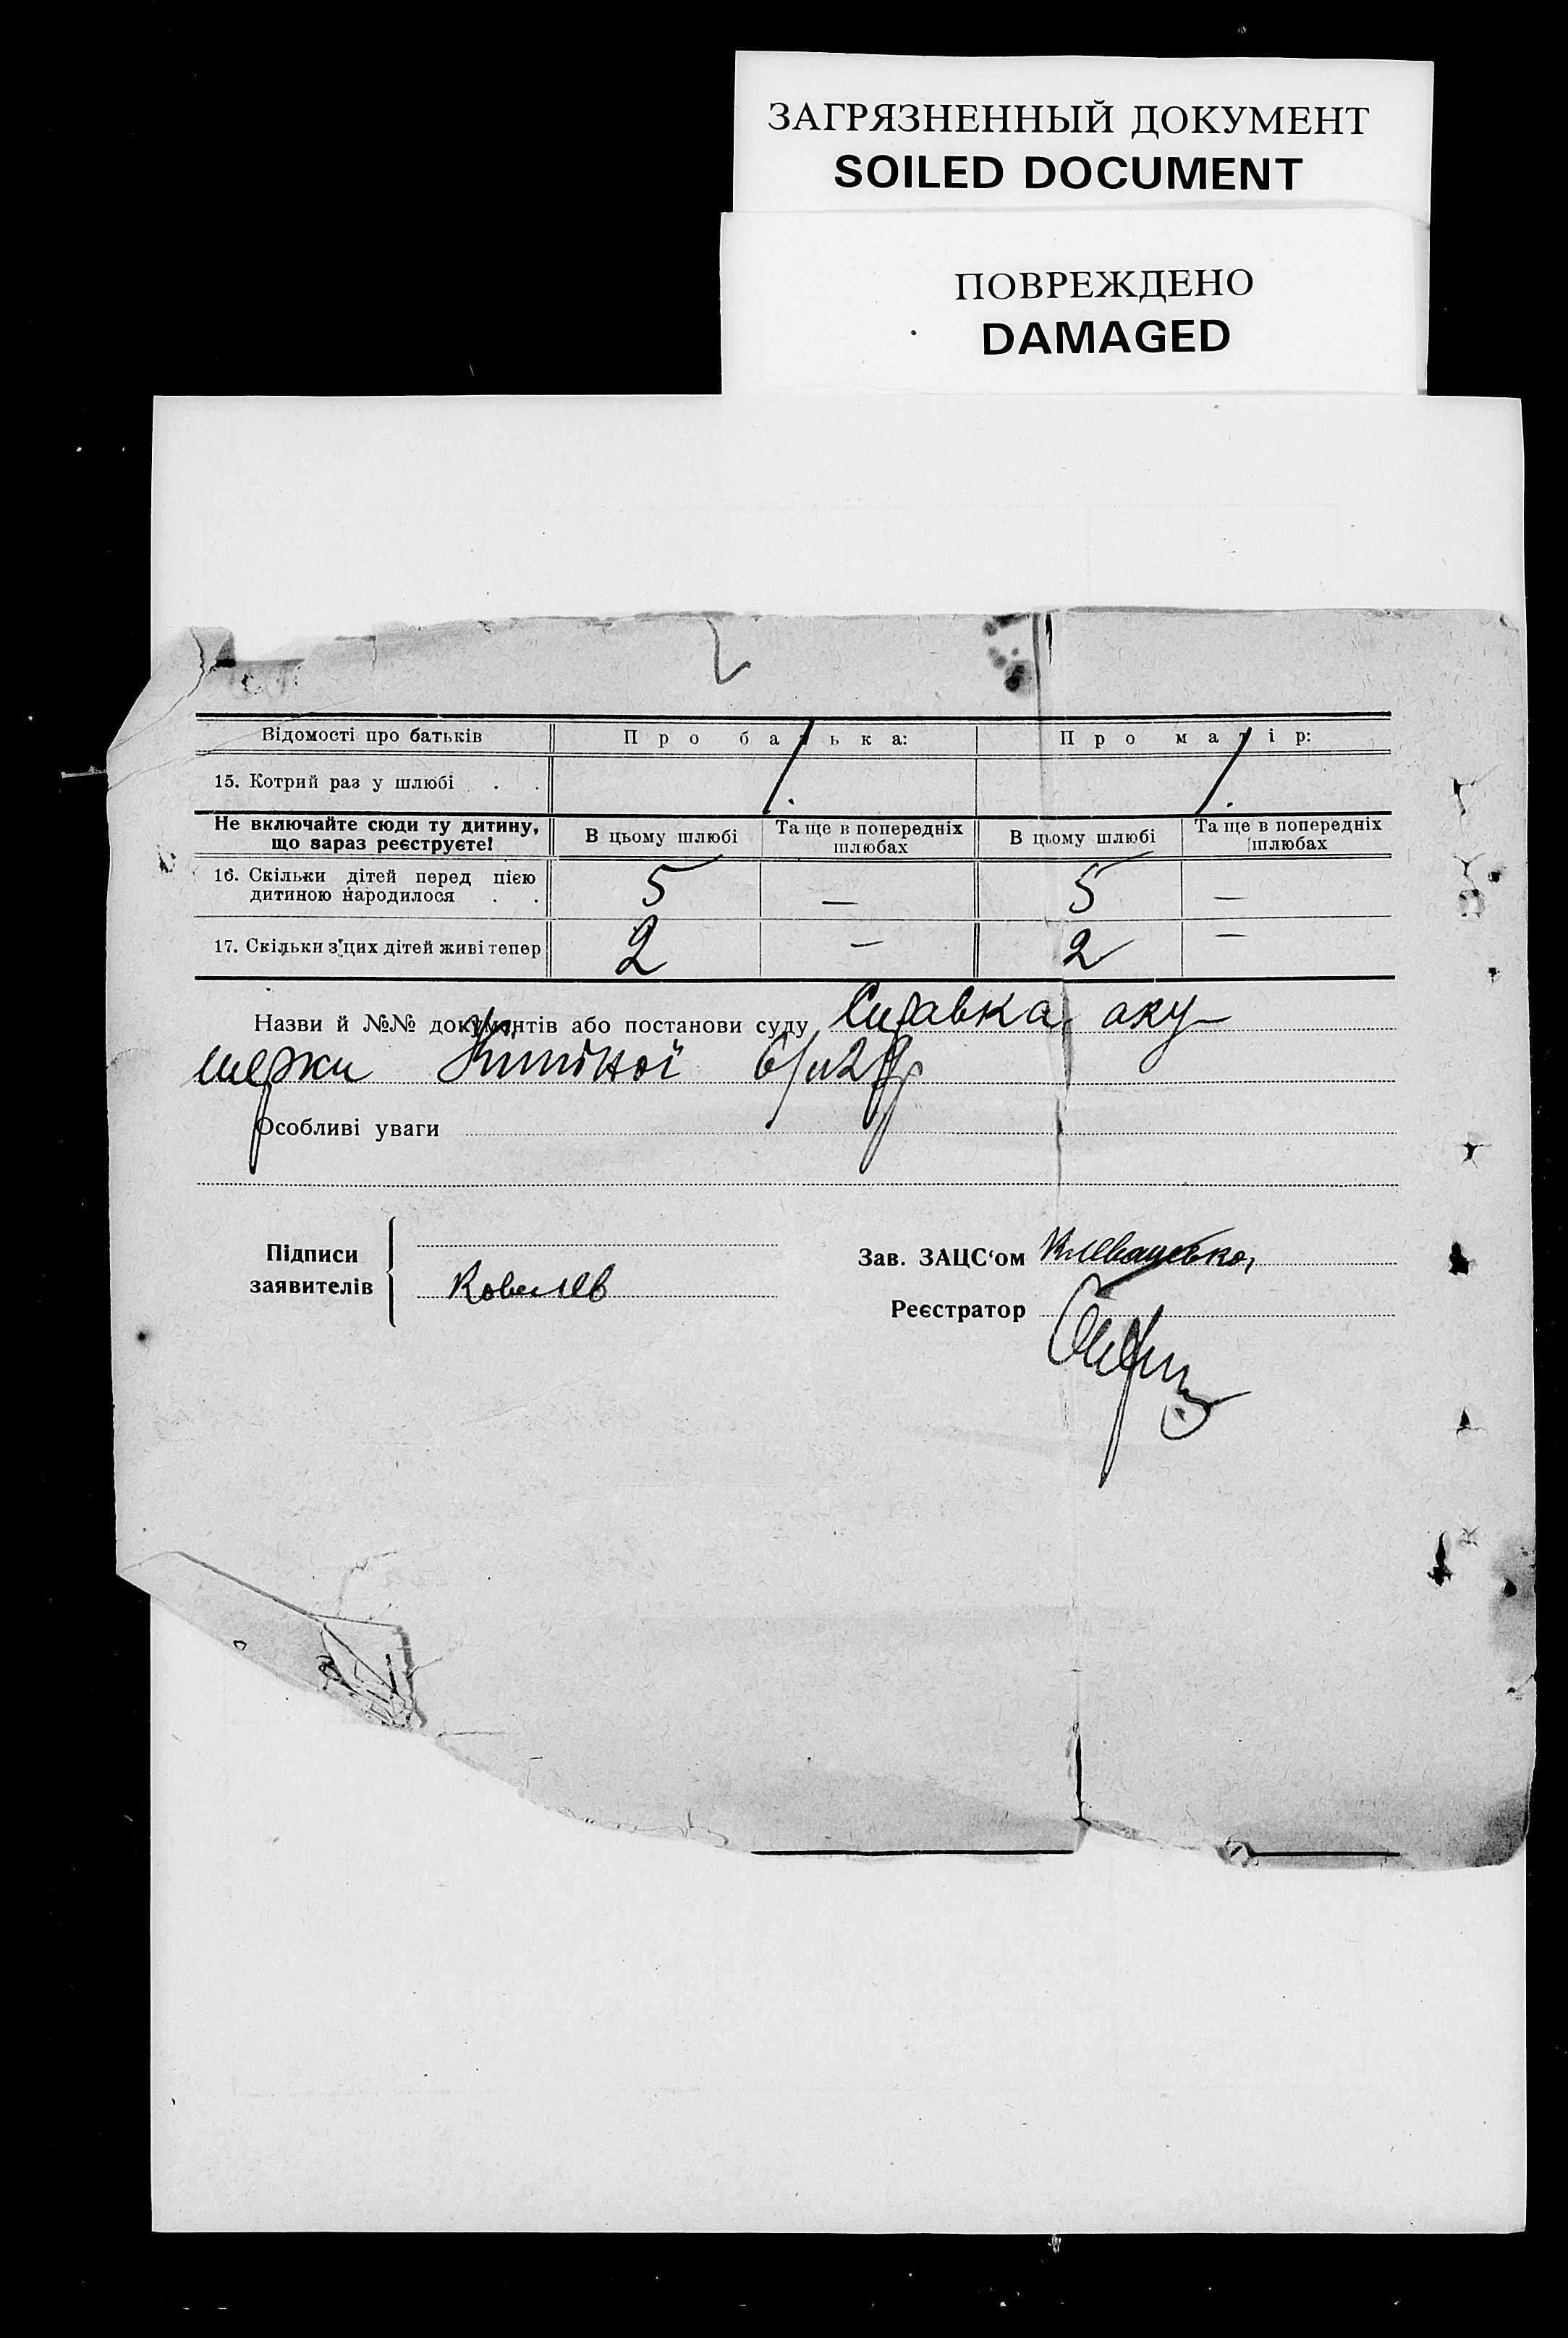 ЗАГРЯЗНЕННЫЙ ДОКУМЕНТ
SOILED DOCUMENT
ПОВРЕЖДЕНО
DAMAGED
Відомості про батьків Про батька: Про матір:
15. Котрий раз у шлюбі . . 1. 1.
Не включайте сюди ту дитину, що вараз реєструєте! В цьому шлюбі Та ще в попередніх шлюбах В цьому шлюбі Та ще в попередніх шлюбах
16. Скільки дітей перед цією дитиною народилося . . 5 — 5 —
17. Скільки з'цих дітей живі тепер 2 — 2 —
Назви й №№ документів або постанови суду Справка аку-
шерки
Особливі уваги
Підписи заявителів
Ковалев
Зав. ЗАЦС'ом
Реєстратор